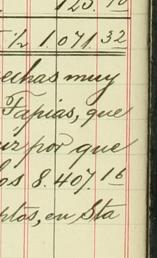 123.10
1/2 1.071.32
echas muy
Tapias, que
ur por que
os 8.407.16
ptos, en Sta